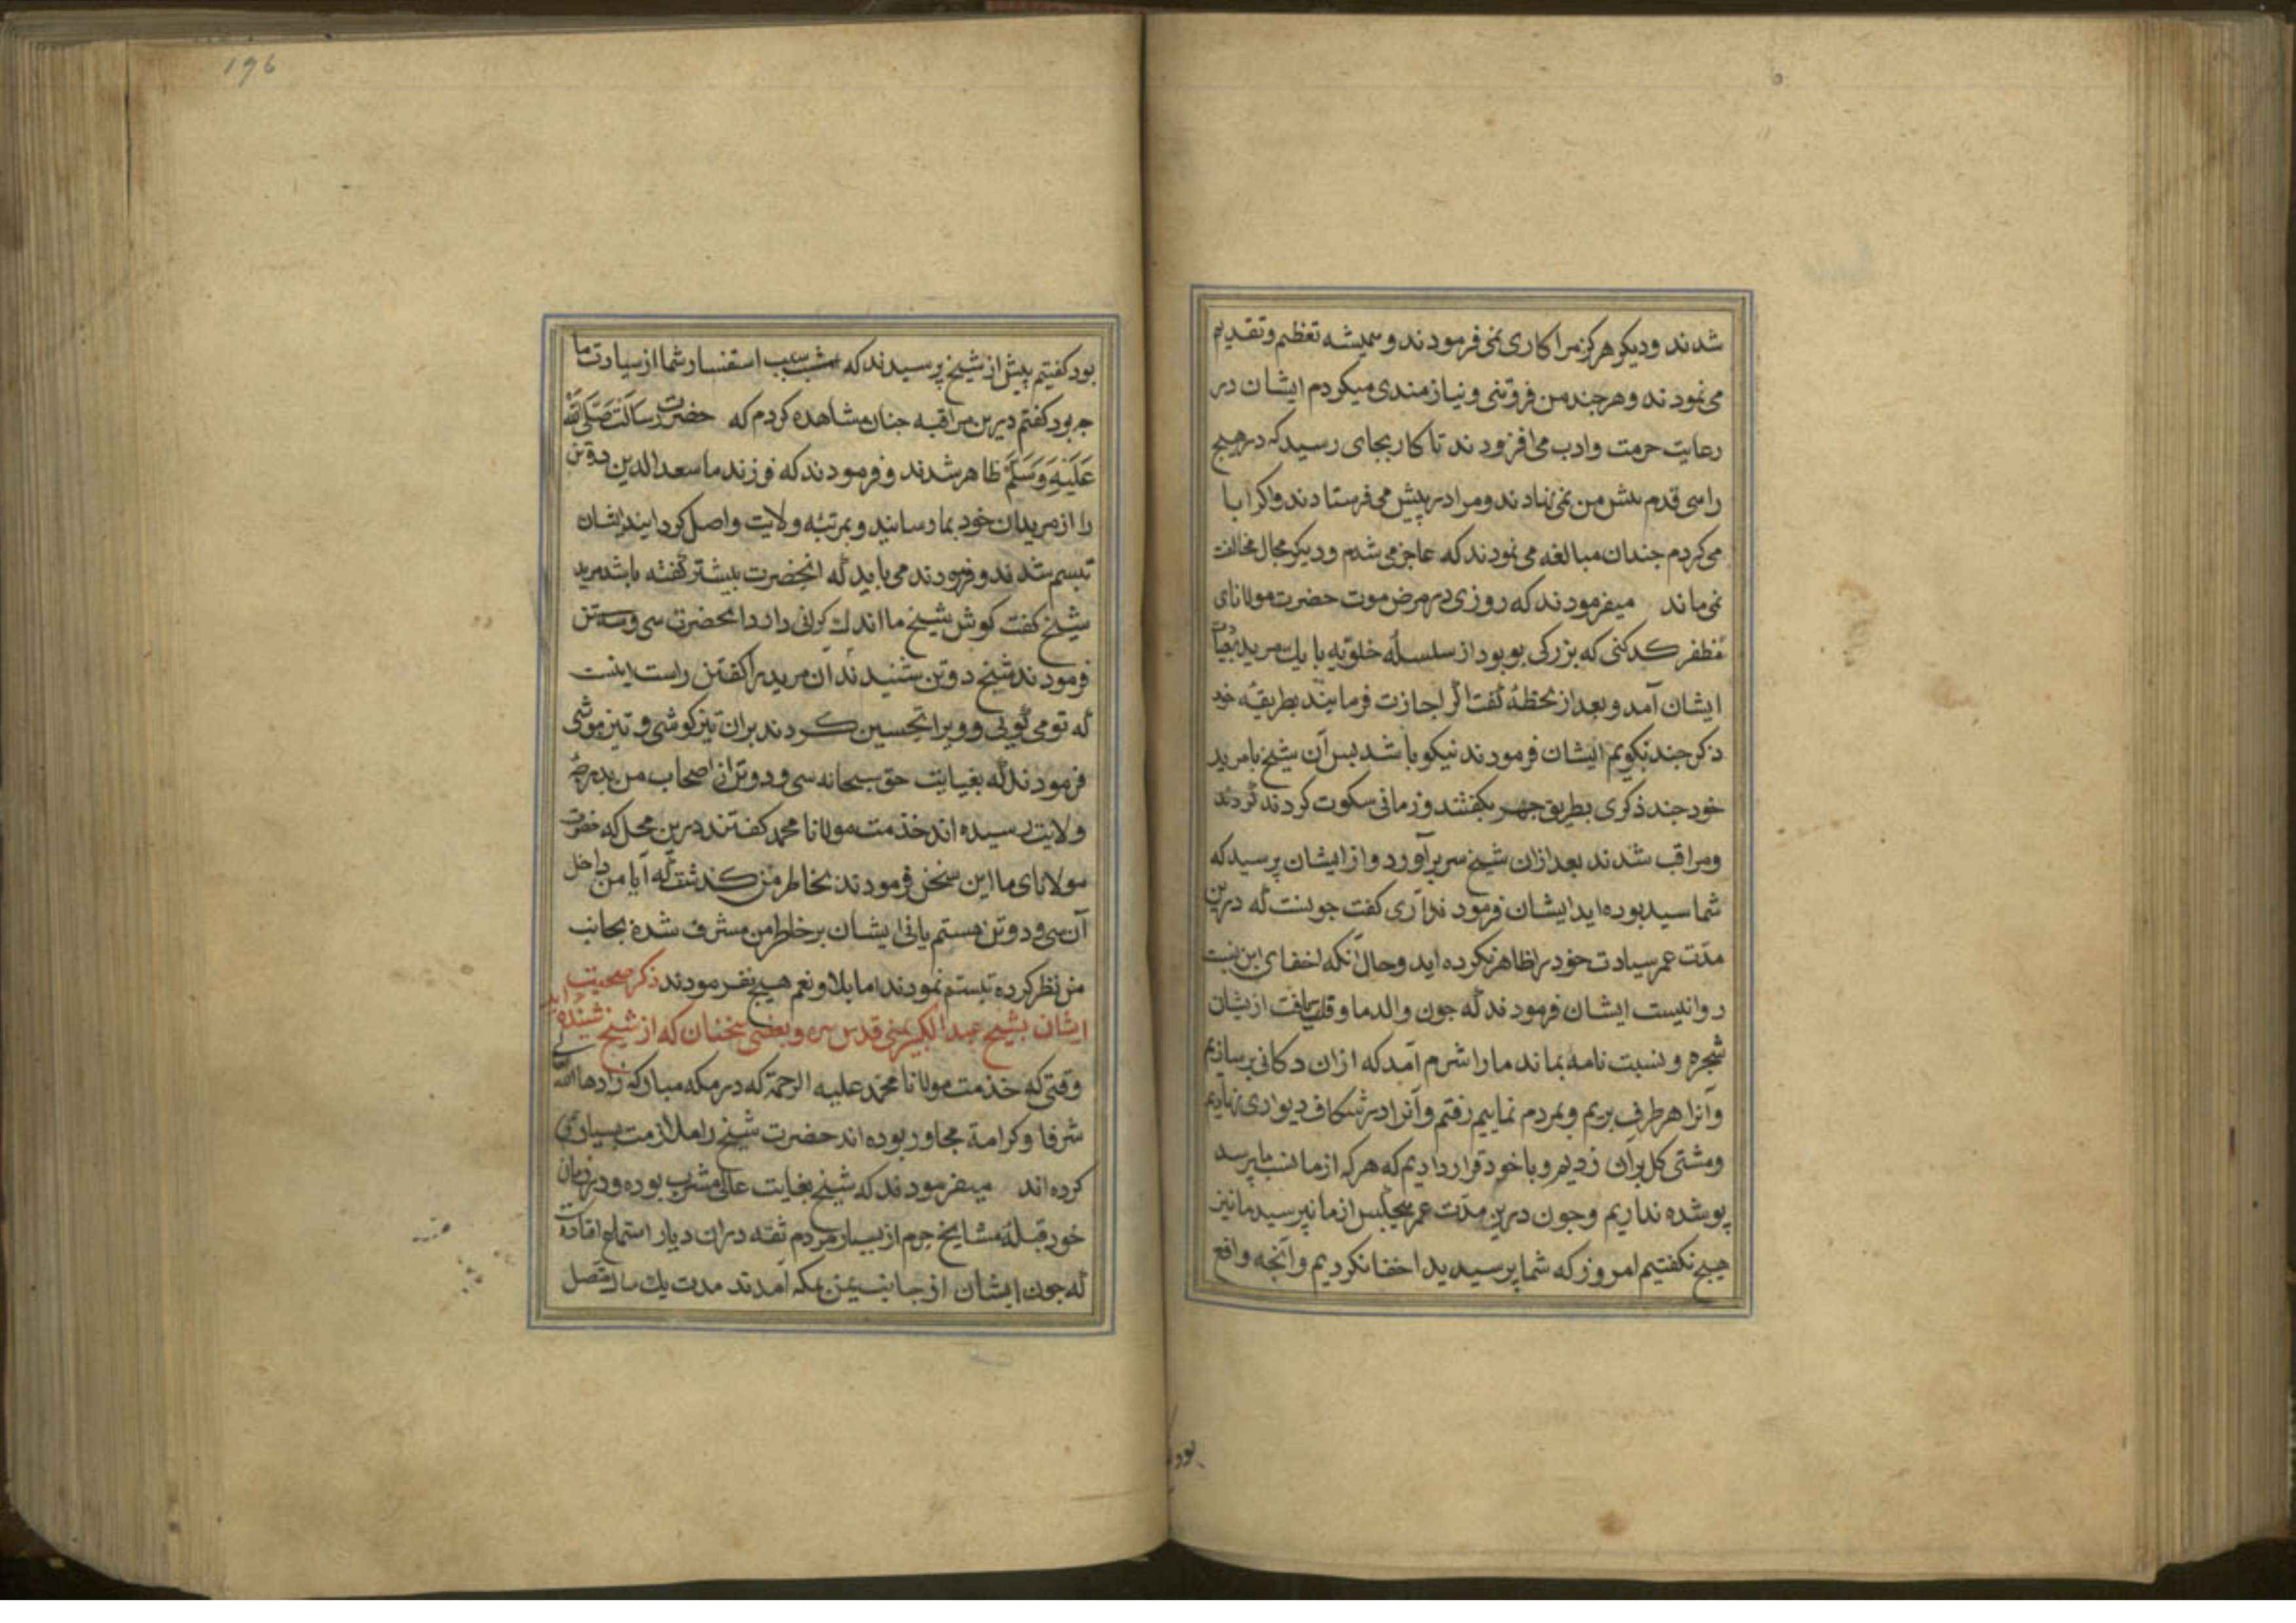 شدند ودیکر هرکز مرا کاری نمی فرمودند و همیشه تعظیم و تقدیم
می نمودند و هر چند من فروتنی و نیازمندی میکردم ایشان در
رعایت حرمت وادب می افزودند تا کار بجای رسید که در هیچ
راهی قدم پیش من نمی نهادند و مرا در پیش می فرستادند واکر ابا
می کردم جندان مبالغه می نمودند که عاجز می شدم و دیکر مجال مخالفت
نمی ماند میفرمودند که روزی در مرض موت حضرت مولانای
مظفر کدکنی که بزرکی بود از سلسله خلوتیه با یک مرید بعیادت
ایشان آمد و بعد از لحظهٔ گفت اگر اجازت فرمایند بطریقه خود
ذکر جند بکویم ایشان فرمودند نیکو باشد بس آن شیخ با مرید
خود جند ذکری بطریق جهر بکفتند و زمانی سکوت کردند
ومراقب شدند بعد ازان شیخ سر برآورد و از ایشان پرسید که
شما سید بوده اید ایشان فرمودند آری کفت جونست که درین
مدت عمر سیادت خود را ظاهر نکرده اید وحال آنکه اخفای این نسبت
روانیست ایشان فرمودند که جون والد ما وفات یافت ازیشان
شجره و نسبت نامه بماند ما را شرم آمد که ازان دکانی برسازیم
وآنرا هر طرف بریم و بمردم نماییم رفتم وآنرا در شکاف دیواری نهادیم
ومشتی کل بران زدیم و با خود قرار دادیم که هر که از ما نسب ما پرسد
پوشده نداریم وجون درین مدت عمر هیچکس از ما نپرسید ما نیز
هیج نکفتیم امروز که شما پرسیدید اخفا نکردیم وآنجه واقع
بود
196
بود کفتیم پیش از شیخ پرسیدند که سبب استفسار شما از سیادت ما
جه بود کفتم درین مراقبه جنان مشاهده کردم که حضرت رسالت صَلَّى اللّٰه
عَلَيْهِ وَسَلَّمْ ظاهر شدند و فرمودند که فرزند ما سعد الدین دو تن
را از مریدان خود بما رسانید و بمرتبهٔ ولایت واصل کردانید ایشان
تبسم شدند و فرمودند می باید که انحضرت بیشتر گفته باشد مرید
شیخ کفت کوش شیخ ما اندک کرانی دارد انحضرت سی و دو تن
فرمودند شیخ دو تن شنیدند آن مرید را کفتن راست اینست
که تو می گویی و ویرا تحسین کردند بران تیز کوشی و تیز هوشی
فرمودند که بغایت حق سبحانه سی و دو تن از اصحاب من بدرجهٔ
ولایت رسیده اند خذمت مولانا محمد کفتند درین محل که حضرت
مولانای ما این سخن فرمودند بخاطر من کذشت که آیا من داخل
آن سی و دو تن هستم یا نی ایشان بر خاطر من مشرف شده بجانب
من نظر کرده تبسم نمودند اما بلا و نعم هیج نفرمودند ذکر صحبت
ایشان بشیخ عبد الکبیر یمنی قدس سره و بعضی سخنان که از شیخ شنیده اند
وقتی که خذمت مولانا محمد علیه الرحمة که در مکه مبارکه زادها الله
شرفا وکرامة مجاور بوده اند حضرت شیخ را ملازمت بسیاری
کرده اند میفرمودند که شیخ بغایت عالی مشرب بوده و در زمان
خود قبلهٔ مشایخ حرم از بسیار مردم ثقه دران دیار استماع افتاده
که جون ایشان از جانب یمن بمکه آمدند مدت یک سال متصل